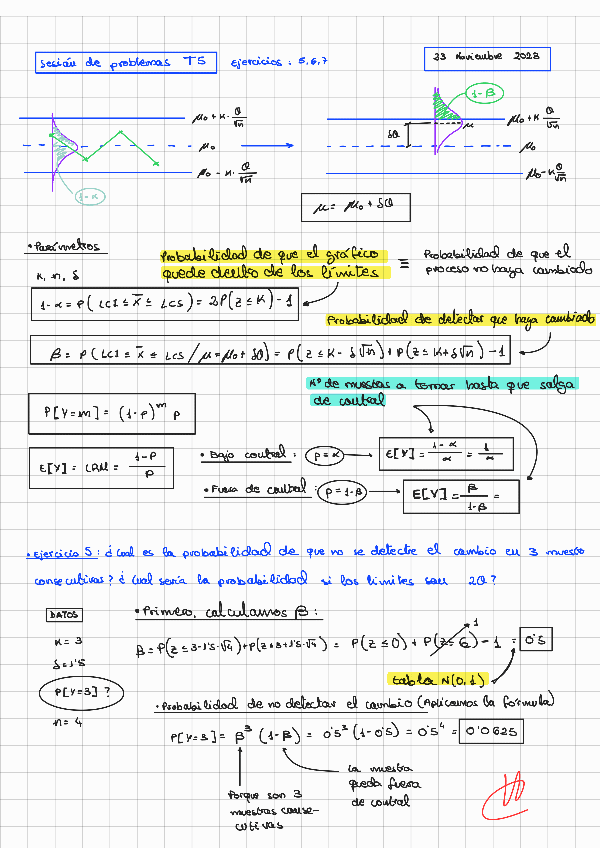 Sesión de problemas T5 Ejercicios: 5,6,7
23 Noviembre 2023
1-β
μ₀ + K · σ/√n
μ₀
μ₀ - K · σ/√n
1-α
δσ
μ
μ₀ + K σ/√n
μ₀
μ₀ - K σ/√n
μ = μ₀ + δσ
• Parámetros
K, n, δ
Probabilidad de que el gráfico
quede dentro de los límites
≡
Probabilidad de que el
proceso no haya cambiado
1-α = P( LCI ≤ X̄ ≤ LCS) = 2P(Z ≤ K) - 1
Probabilidad de detectar que haya cambiado
β = P( LCI ≤ X̄ ≤ LCS / μ = μ₀ + δσ) = P(Z ≤ K - δ√n) + P(Z ≤ K + δ√n) - 1
Nº de muestras a tomar hasta que salga
de control
P[Y=m] = (1-p)^m p
E[Y] = LRM = 1-P/P
• Bajo control : p=α → E[Y] = 1-α/α = 1/α
• Fuera de control : p=1-β → E[Y] = β/1-β =
• Ejercicio 5 : ¿Cuál es la probabilidad de que no se detecte el cambio en 3 muestras
consecutivas? ¿Cuál sería la probabilidad si los límites son 2σ?
DATOS
K = 3
δ = 1'5
P[Y=3] ?
n = 4
• Primero, calculamos β :
β = P(Z ≤ 3-1'5·√4) + P(Z ≤ 3+1'5·√4) = P(Z ≤ 0) + P(Z ≤ 6) - 1 = 0'5
1
tabla N(0,1)
• Probabilidad de no detectar el cambio (Aplicamos la fórmula)
P[Y=3] = β³ (1-β) = 0'5³ (1-0'5) = 0'5⁴ = 0'0625
Porque son 3
muestras conse-
cutivas
La muestra
queda fuera
de control